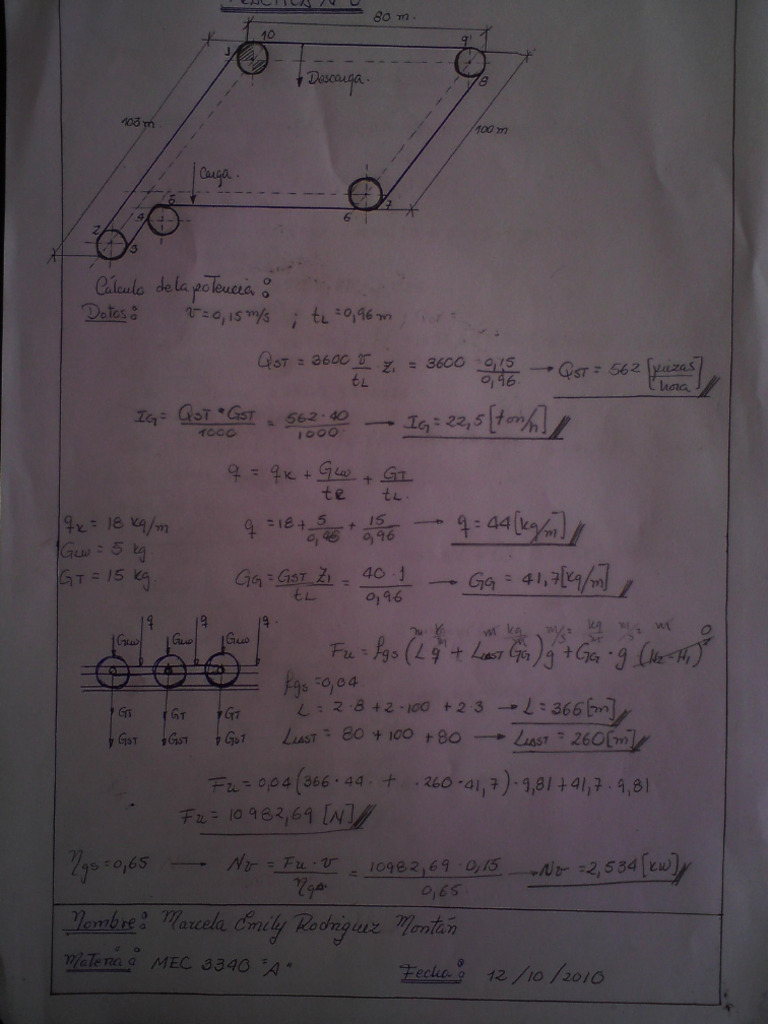 80 m.
1 10 9
8
Descarga.
103 m
100 m
Carga.
2 3 4 5 6 7
Cálculo de la potencia:
Datos: v = 0,15 m/s ; tL = 0,96 m
QST = 3600 v/tL · z1 = 3600 0,15/0,96 → QST = 562 [piezas/hora]
IG = QST · GST/1000 = 562·40/1000 → IG = 22,5 [ton/h]
q = qk + GLW/te + GT/tL
qk = 18 kg/m
q = 18 + 5/0,45 + 15/0,96 → q = 44 [kg/m]
GLW = 5 kg
GT = 15 kg
GG = GST z1/tL = 40·1/0,96 → GG = 41,7 [kg/m]
q q q
GLW GLW GLW
GT GT GT
GST GST GST
m kg/m m kg/m m/s² kg/m m/s² m 0
Fu = fgs (L q + LLAST GG) g + GG · g (H2 - H1)
fgs = 0,04
L = 2·8 + 2·100 + 2·3 → L = 366 [m]
LLAST = 80 + 100 + 80 → LLAST = 260 [m]
Fu = 0,04 (366·44 + 260·41,7) · 9,81 + 41,7 · 9,81
Fu = 10982,69 [N]
ηgs = 0,65 → Nv = Fu · v/ηgs = 10982,69 · 0,15/0,65 → Nv = 2,534 [kW]
Nombre: Marcela Emily Rodriguez Montán
Materia: MEC 3340 "A"
Fecha: 12/10/2010